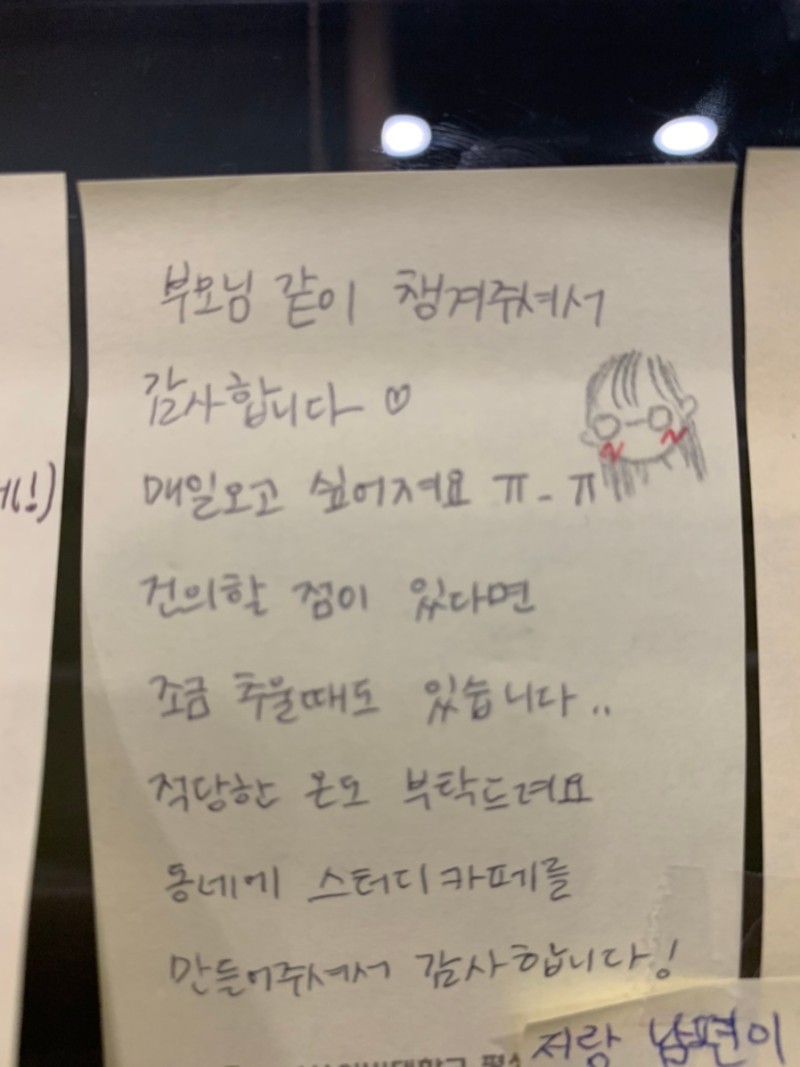 부모님 같이 챙겨주셔서
감사합니다 ♡
매일오고 싶어져요 ㅠ-ㅠ
건의할 점이 있다면
조금 추울때도 있습니다..
적당한 온도 부탁드려요
동네에 스터디카페를
만들어주셔서 감사합니다!
저랑 남편이